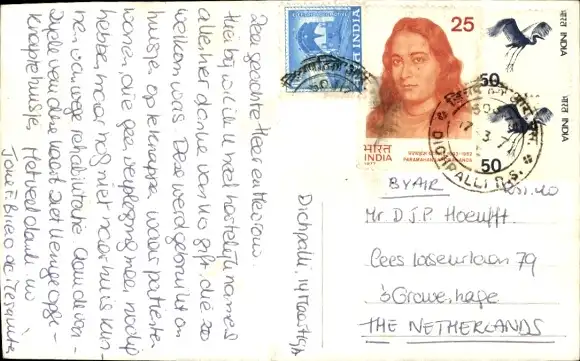 Zeer geachte Heer en Mevrouw.
Hierbij wil ik U heel hartelijk namens
allen hier danken van Uw gift, die zo
welkom was. Deze werd gebruikt om
huisjes op te knappen waar patienten
wonen, die geen verpleging meer nodig
hebben maar nog niet naar huis kun-
nen vanwege rehabilitatie. Aan de van-
zijde van deze kaart ziet U enige opge-
knapte huisjes. Met veel dank, uw
Dichpalli, 14 Maart 1979
INDIA
25
भारत
INDIA
1977
PARAMAHANSA YOGANANDA
50
भारत
INDIA
50
भारत
INDIA
DICHPALLI R.S.
BY AIR
Mr D.J.P. Hoeufft
Cees Laseurlaan 79
's Gravenhage
THE NETHERLANDS